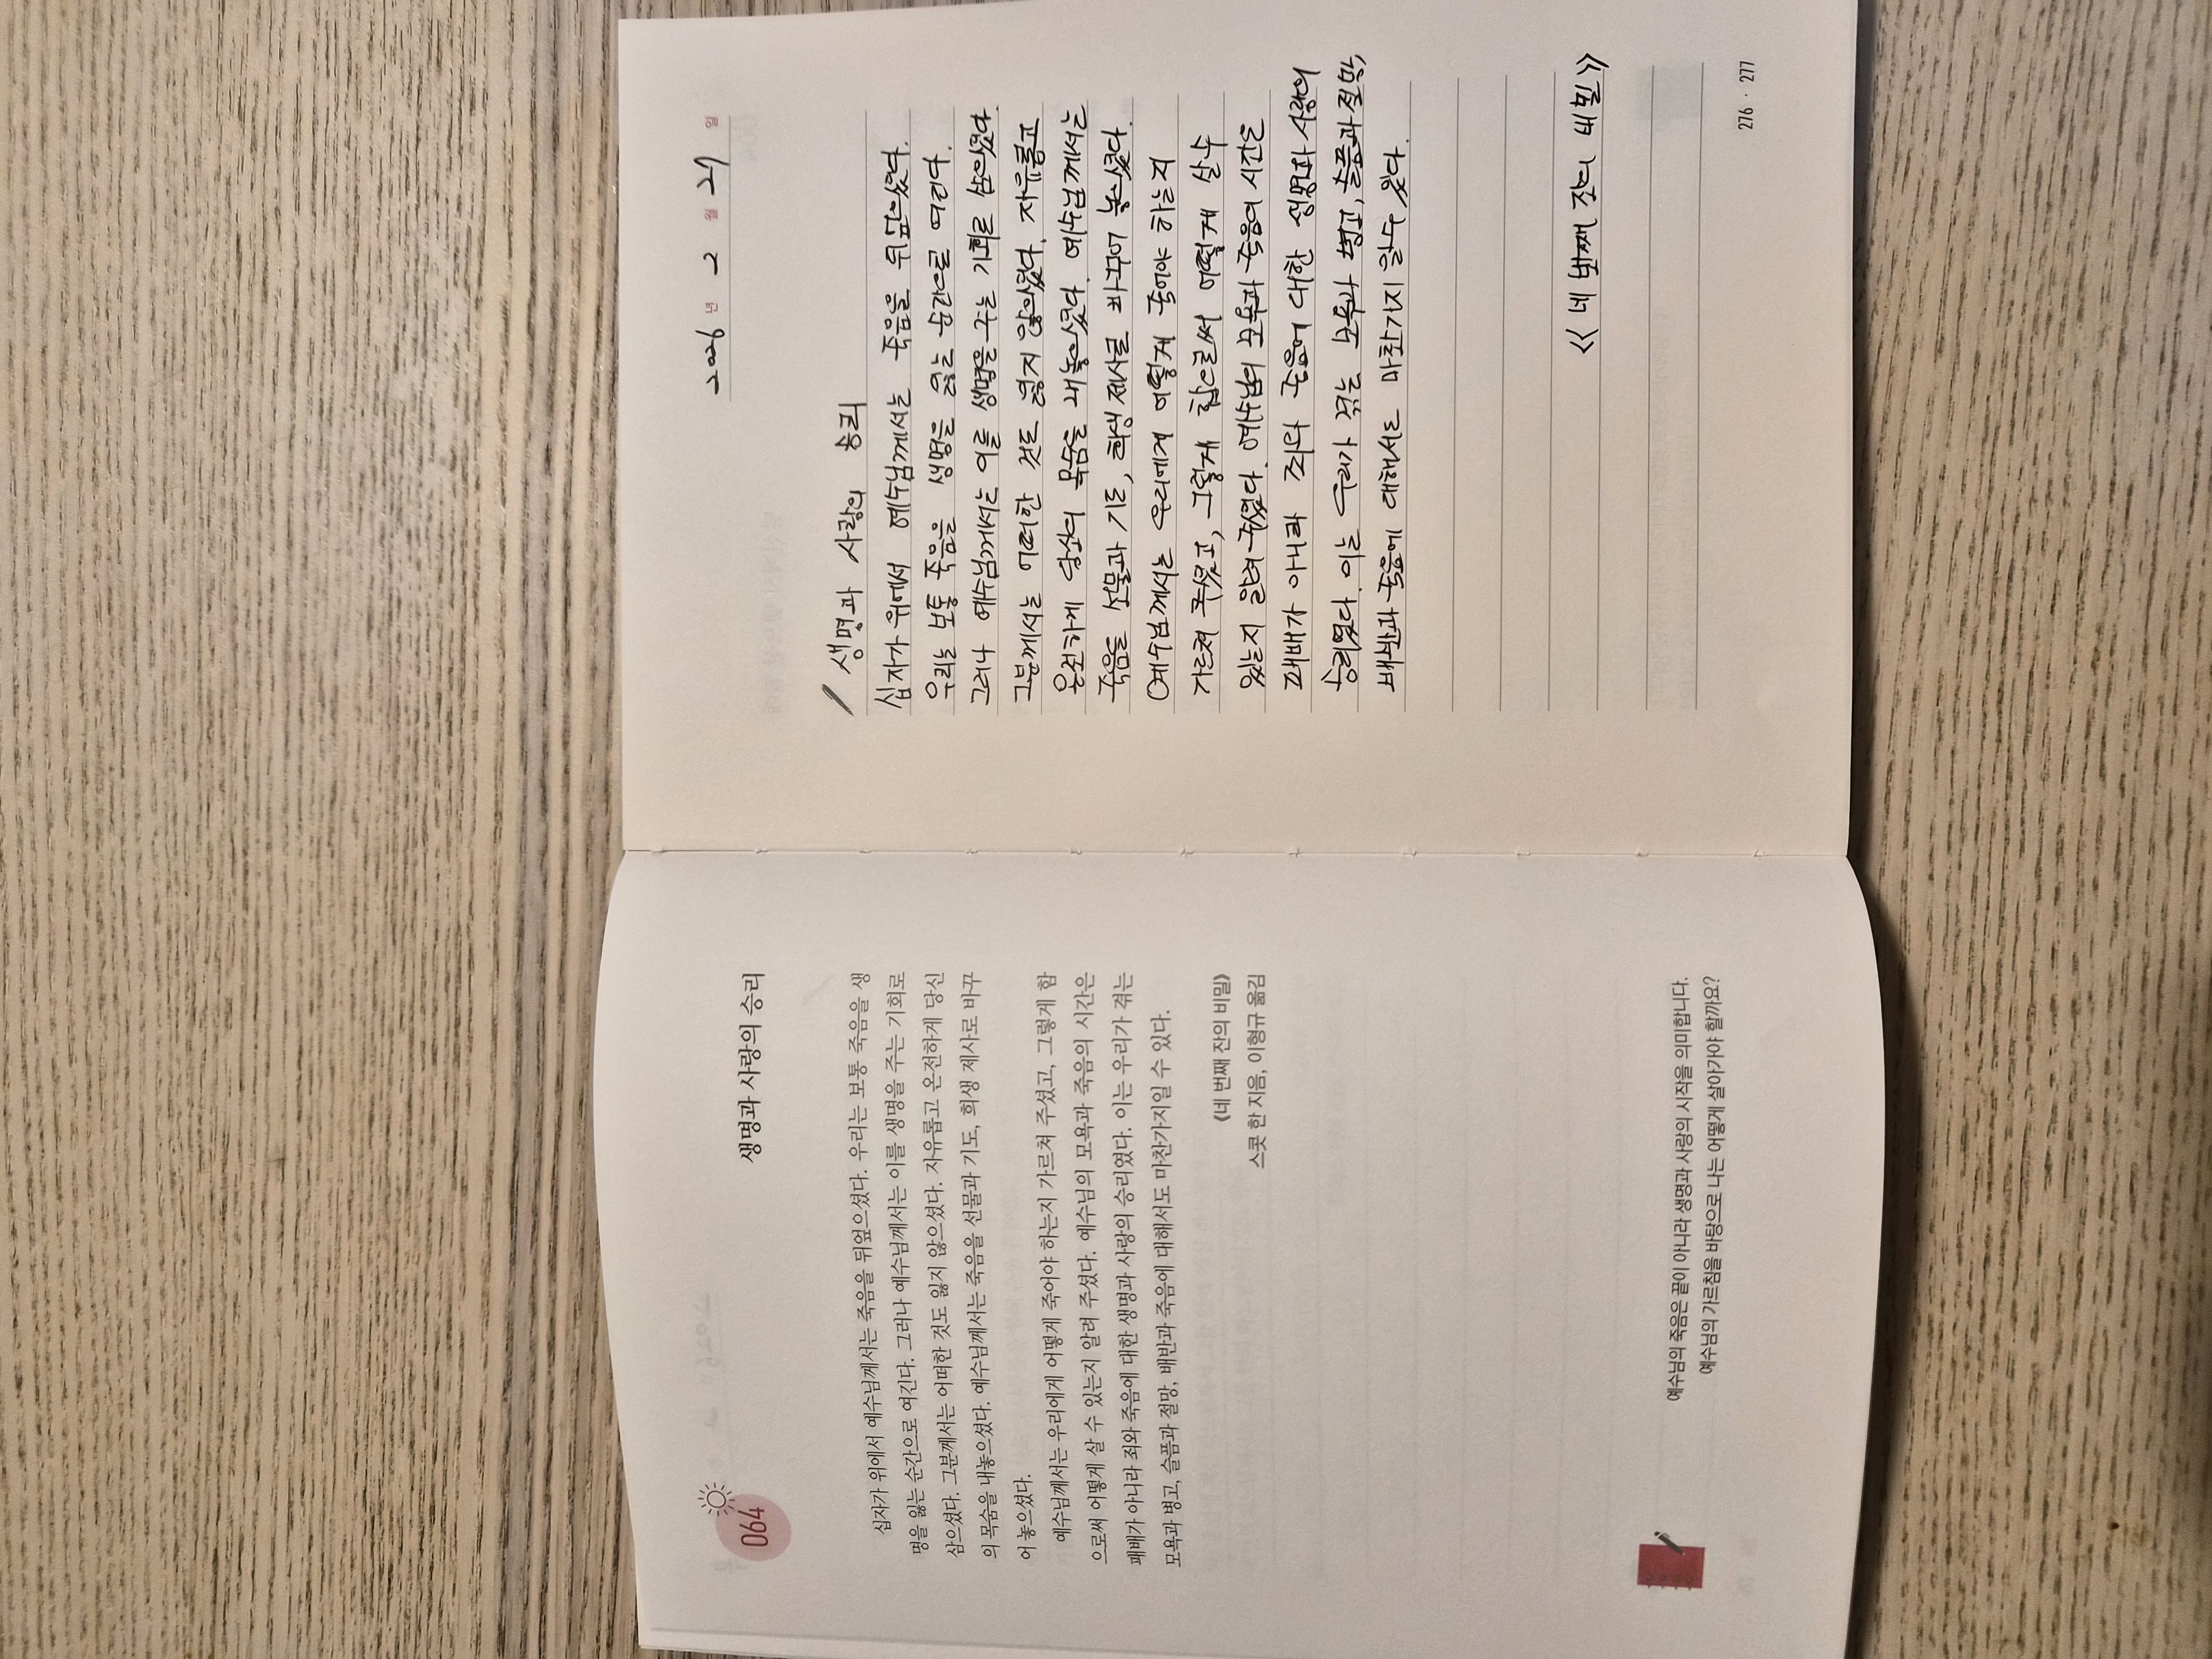 064
생명과 사랑의 승리
십자가 위에서 예수님께서는 죽음을 뒤엎으셨다. 우리는 보통 죽음을 생
명을 잃는 순간으로 여긴다. 그러나 예수님께서는 이를 생명을 주는 기회로
삼으셨다. 그분께서는 어떠한 것도 잃지 않으셨다. 자유롭고 온전하게 당신
의 목숨을 내놓으셨다. 예수님께서는 죽음을 선물과 기도, 희생 제사로 바꾸
어 놓으셨다.
예수님께서는 우리에게 어떻게 죽어야 하는지 가르쳐 주셨고, 그렇게 함
으로써 어떻게 살 수 있는지 알려 주셨다. 예수님의 모욕과 죽음의 시간은
패배가 아니라 죄와 죽음에 대한 생명과 사랑의 승리였다. 이는 우리가 겪는
모욕과 병고, 슬픔과 절망, 배반과 죽음에 대해서도 마찬가지일 수 있다.
《네 번째 잔의 비밀》
스콧 한 지음, 이형규 옮김
예수님의 죽음은 끝이 아니라 생명과 사랑의 시작을 의미합니다.
예수님의 가르침을 바탕으로 나는 어떻게 살아가야 할까요?
2026 년 2 월 27 일
생명과 사랑의 승리
십자가 위에서 예수님께서는 죽음을 뒤엎으셨다.
우리는 보통 죽음을 생명을 잃는 순간으로 여긴다.
그러나 예수님께서는 이를 생명을 주는 기회로 삼으셨다.
그분께서는 어떠한 것도 잃지 않으셨다. 자유롭고
온전하게 당신의 목숨을 내놓으셨다. 예수님께서는
죽음을 선물과 기도, 희생 제사로 바꾸어 놓으셨다.
예수님께서는 우리에게 어떻게 죽어야 하는지
가르쳐 주셨고, 그렇게 함으로써 어떻게 살 수
있는지 알려 주셨다. 예수님의 모욕과 죽음의 시간은
패배가 아니라 죄와 죽음에 대한 생명과 사랑의
승리였다. 이는 우리가 겪는 모욕과 병고, 슬픔과 절망,
배반과 죽음에 대해서도 마찬가지 일 수 있다.
《네 번째 잔의 비밀》
276 · 277